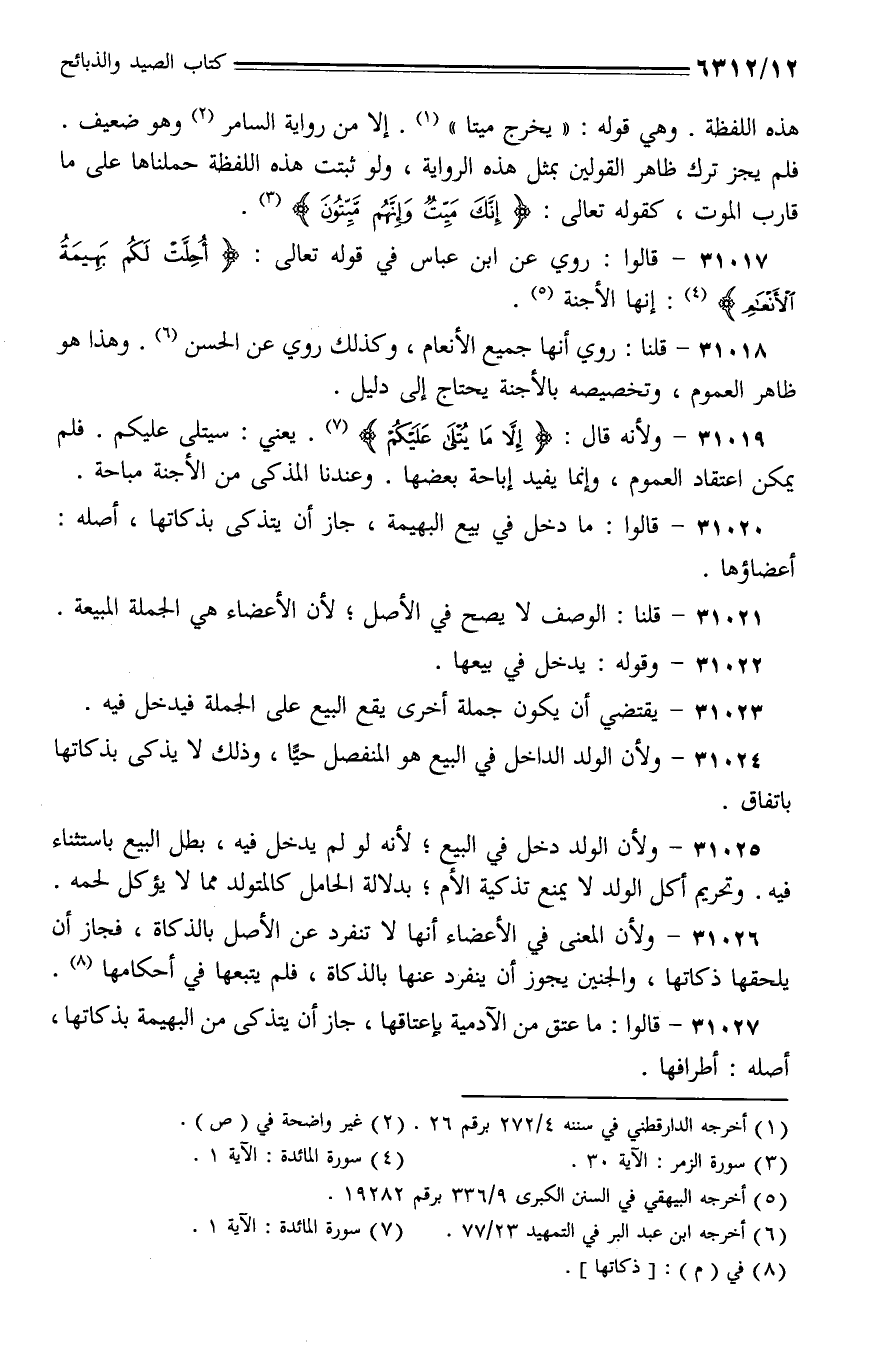 ٦٣١٢/١٢ كتاب الصيد والذبائح
هذه اللفظة . وهي قوله : « يخرج ميتا » (١) . إلا من رواية السامر (٢) وهو ضعيف .
فلم يجز ترك ظاهر القولين بمثل هذه الرواية ، ولو ثبتت هذه اللفظة حملناها على ما
قارب الموت ، كقوله تعالى : ﴿ إِنَّكَ مَيِّتٌ وَإِنَّهُم مَّيِّتُونَ ﴾ (٣) .
٣١٠١٧ – قالوا : روي عن ابن عباس في قوله تعالى : ﴿ أُحِلَّتْ لَكُم بَهِيمَةُ
ٱلْأَنْعَٰمِ ﴾ (٤) : إنها الأجنة (٥) .
٣١٠١٨ – قلنا : روي أنها جميع الأنعام ، وكذلك روي عن الحسن (٦) . وهذا هو
ظاهر العموم ، وتخصيصه بالأجنة يحتاج إلى دليل .
٣١٠١٩ – ولأنه قال : ﴿ إِلَّا مَا يُتْلَىٰ عَلَيْكُمْ ﴾ (٧) . يعني : سيتلى عليكم . فلم
يمكن اعتقاد العموم ، وإنما يفيد إباحة بعضها . وعندنا المذكى من الأجنة مباحة .
٣١٠٢٠ – قالوا : ما دخل في بيع البهيمة ، جاز أن يتذكى بذكاتها ، أصله :
أعضاؤها .
٣١٠٢١ – قلنا : الوصف لا يصح في الأصل ؛ لأن الأعضاء هي الجملة المبيعة .
٣١٠٢٢ – وقوله : يدخل في بيعها .
٣١٠٢٣ – يقتضي أن يكون جملة أخرى يقع البيع على الجملة فيدخل فيه .
٣١٠٢٤ – ولأن الولد الداخل في البيع هو المنفصل حيًّا ، وذلك لا يذكى بذكاتها
باتفاق .
٣١٠٢٥ – ولأن الولد دخل في البيع ؛ لأنه لو لم يدخل فيه ، بطل البيع باستثناء
فيه . وتحريم أكل الولد لا يمنع تذكية الأم ؛ بدلالة الحامل كالمتولد مما لا يؤكل لحمه .
٣١٠٢٦ – ولأن المعنى في الأعضاء أنها لا تنفرد عن الأصل بالذكاة ، فجاز أن
يلحقها ذكاتها ، والجنين يجوز أن ينفرد عنها بالذكاة ، فلم يتبعها في أحكامها (٨) .
٣١٠٢٧ – قالوا : ما عتق من الآدمية بإعتاقها ، جاز أن يتذكى من البهيمة بذكاتها ،
أصله : أطرافها .
(١) أخرجه الدارقطني في سننه ٢٧٢/٤ برقم ٢٦ . (٢) غير واضحة في ( ص ) .
(٣) سورة الزمر : الآية ٣٠ . (٤) سورة المائدة : الآية ١ .
(٥) أخرجه البيهقي في السنن الكبرى ٣٣٦/٩ برقم ١٩٢٨٢ .
(٦) أخرجه ابن عبد البر في التمهيد ٧٧/٢٣ . (٧) سورة المائدة : الآية ١ .
(٨) في ( م ) : [ ذكاتها ] .